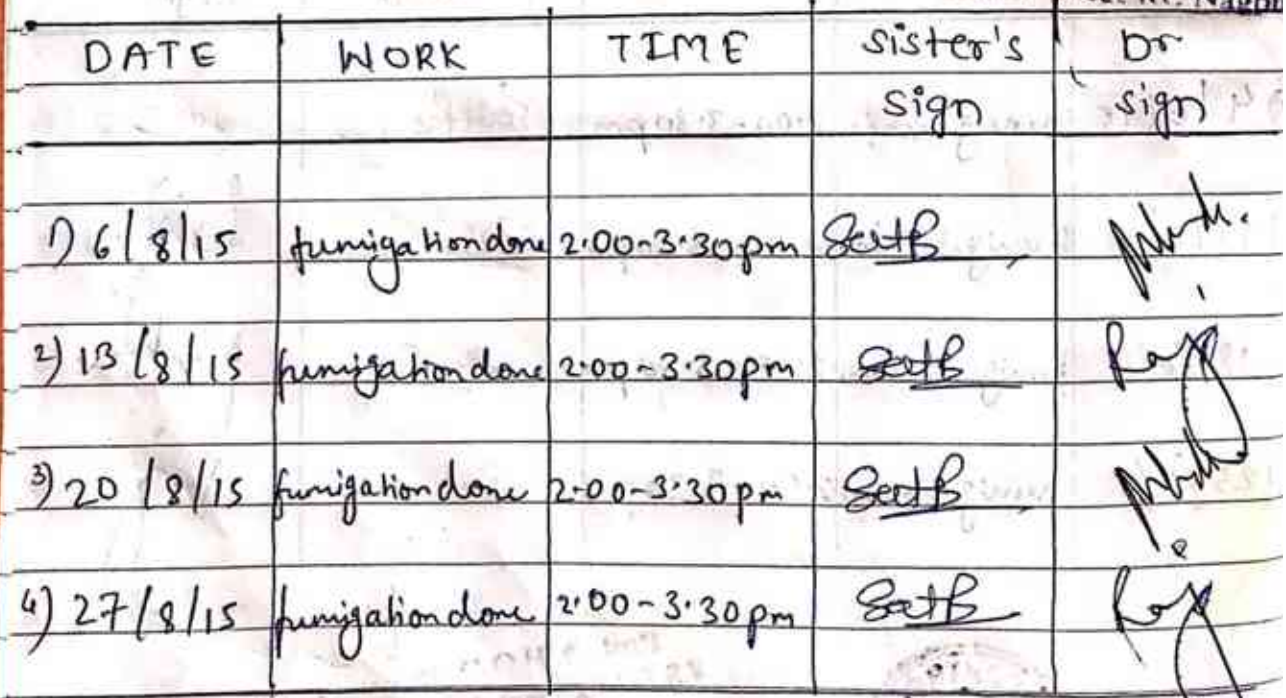 DATE WORK TIME sister's Dr
sign sign
1) 6/8/15 fumigation done 2.00-3.30pm
2) 13/8/15 fumigation done 2.00-3.30pm
3) 20/8/15 fumigation done 2.00-3.30pm
4) 27/8/15 fumigation done 2.00-3.30pm